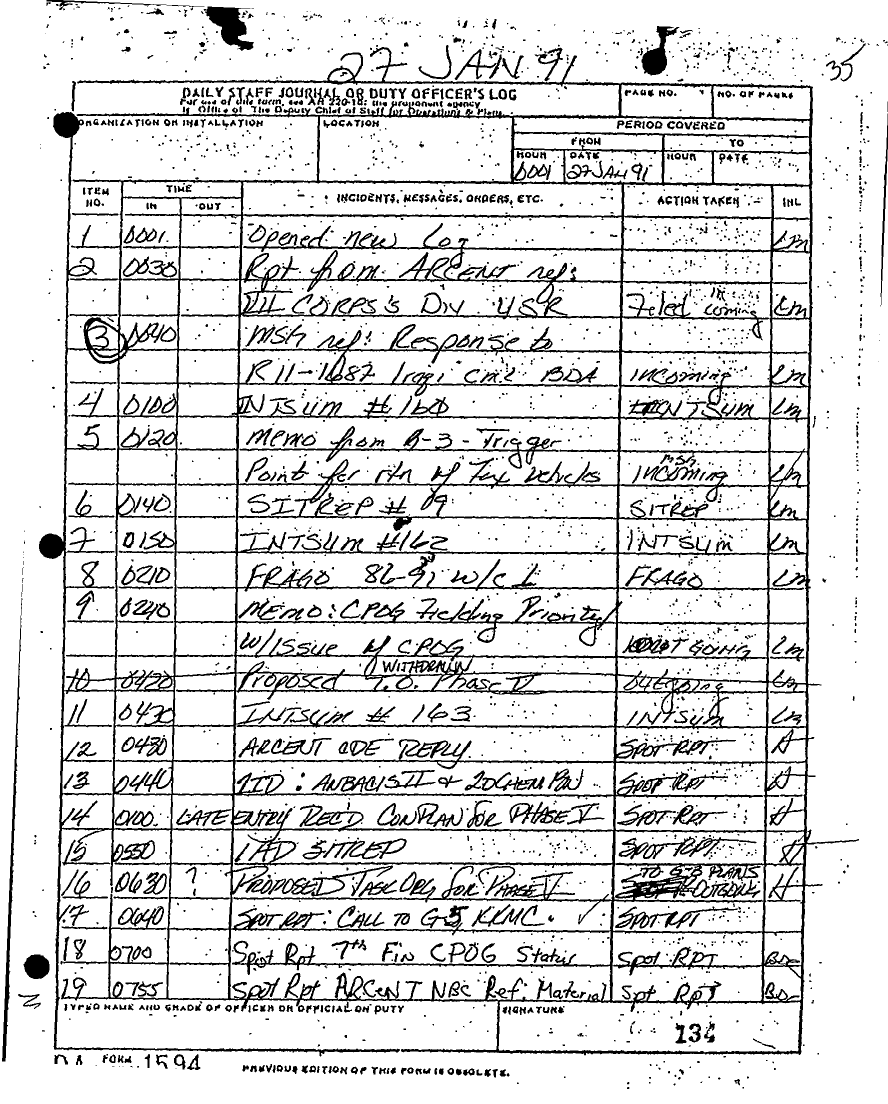 27 JAN 91
35
DAILY STAFF JOURNAL OR DUTY OFFICER'S LOG
PAGE NO.
NO. OF PAGES
For use of this form, see AR 220-15; the proponent agency
is Office of The Deputy Chief of Staff for Operations & Plans
ORGANIZATION OR INSTALLATION
LOCATION
PERIOD COVERED
FROM
TO
HOUR
DATE
HOUR
DATE
0001
27 JAN 91
ITEM NO.
TIME
INCIDENTS, MESSAGES, ORDERS, ETC.
ACTION TAKEN
INL
IN
OUT
1 0001 Opened new Log Lm
2 0030 Rpt from ARCENT ref:
VII CORPS's Div USR Filed incoming Lm
3 0040 MSG ref: Response to
R11-1687 Iraqi Cml BDA INCOMING Lm
4 0100 INTSUM # 160 INTSUM Lm
5 0120 memo from B-3-Trigger
Point for rtn of Fox Vehicles MSG INCOMING Lm
6 0140 SITREP # 09 SITREP Lm
7 0150 INTSUM #162 INTSUM Lm
8 0210 FRAGO 86-91 w/c 1 FRAGO Lm
9 0240 MEMO: CPOG Fielding Priority/
W/ISSUE of CPOG OUT GOING Lm
10 0420 Proposed T.O. Phase V WITHDRAWN Outgoing Lm
11 0430 INTSUM # 163 INTSUM Lm
12 0430 ARCENT CDE REPLY SPOT RPT. H
13 0440 1ID: ANBACIS II & 20CHEM BN SPOT RPT H
14 0100. LATE ENTRY REC'D CONPLAN for PHASE V SPOT RPT H
15 0550 1AD SITREP SPOT RPT H
16 0630 ? PROPOSED TASK ORG for PHASE V TO G-3 PLANS OUTGOING H
17 0640 SPOT RPT: CALL TO G5, KKMC. ✓ SPOT RPT
18 0700 Spot Rpt 7th Fin CPOG Status Spot RPT
19 0755 Spot Rpt ARCENT NBC Ref: Material Spt RPT
TYPED NAME AND GRADE OF OFFICER OR OFFICIAL ON DUTY
SIGNATURE
134
DA FORM 1594
PREVIOUS EDITION OF THIS FORM IS OBSOLETE.